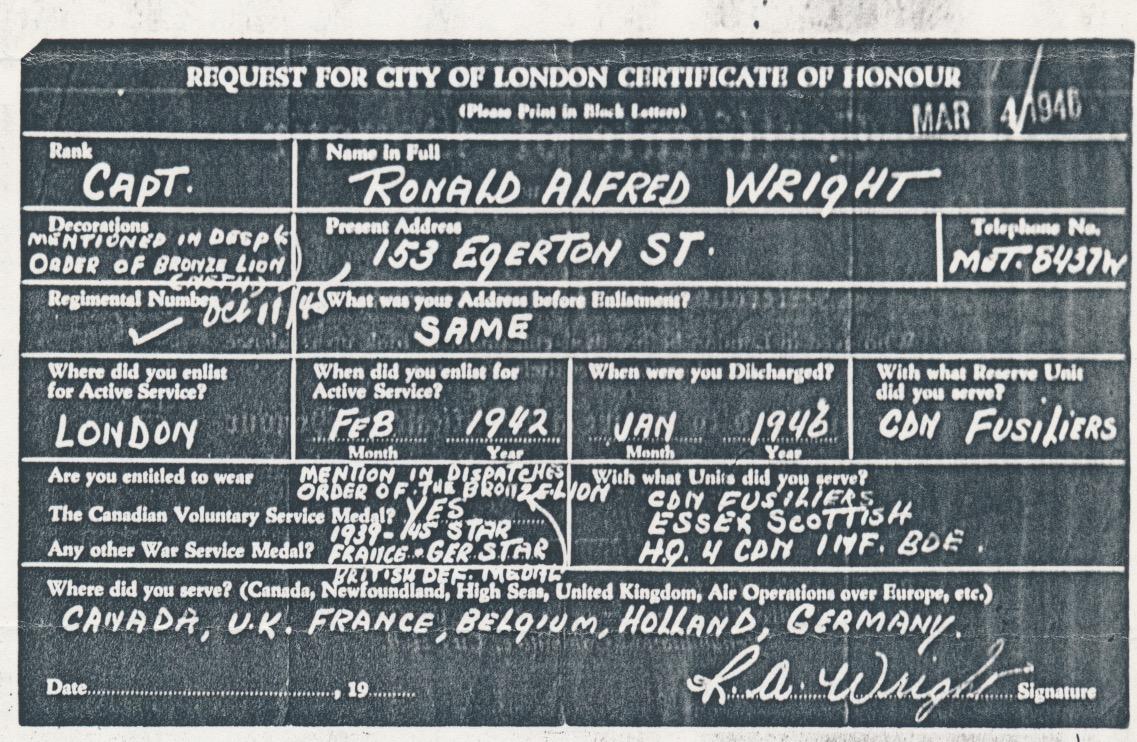 REQUEST FOR CITY OF LONDON CERTIFICATE OF HONOUR
(Please Print in Block Letters)
MAR 4 1946
Rank
CAPT.
Name in Full
RONALD ALFRED WRIGHT
Decorations
MENTIONED IN DESP
ORDER OF BRONZE LION
(NETH)
Present Address
153 EGERTON ST.
Telephone No.
MET. 8437W
Regimental Number
Oct 11/45
What was your Address before Enlistment?
SAME
Where did you enlist
for Active Service?
LONDON
When did you enlist for
Active Service?
FEB 1942
Month Year
When were you Discharged?
JAN 1946
Month Year
With what Reserve Unit
did you serve?
CDN FUSILIERS
Are you entitled to wear
MENTION IN DISPATCHES
ORDER OF THE BRONZE LION
The Canadian Voluntary Service Medal? YES
1939-45 STAR
Any other War Service Medal? FRANCE + GER. STAR
BRITISH DEF. MEDAL
With what Units did you serve?
CDN FUSILIERS
ESSEX SCOTTISH
H.Q. 4 CDN INF. BDE.
Where did you serve? (Canada, Newfoundland, High Seas, United Kingdom, Air Operations over Europe, etc.)
CANADA, U.K. FRANCE, BELGIUM, HOLLAND, GERMANY.
Date, 19
R. A. Wright Signature